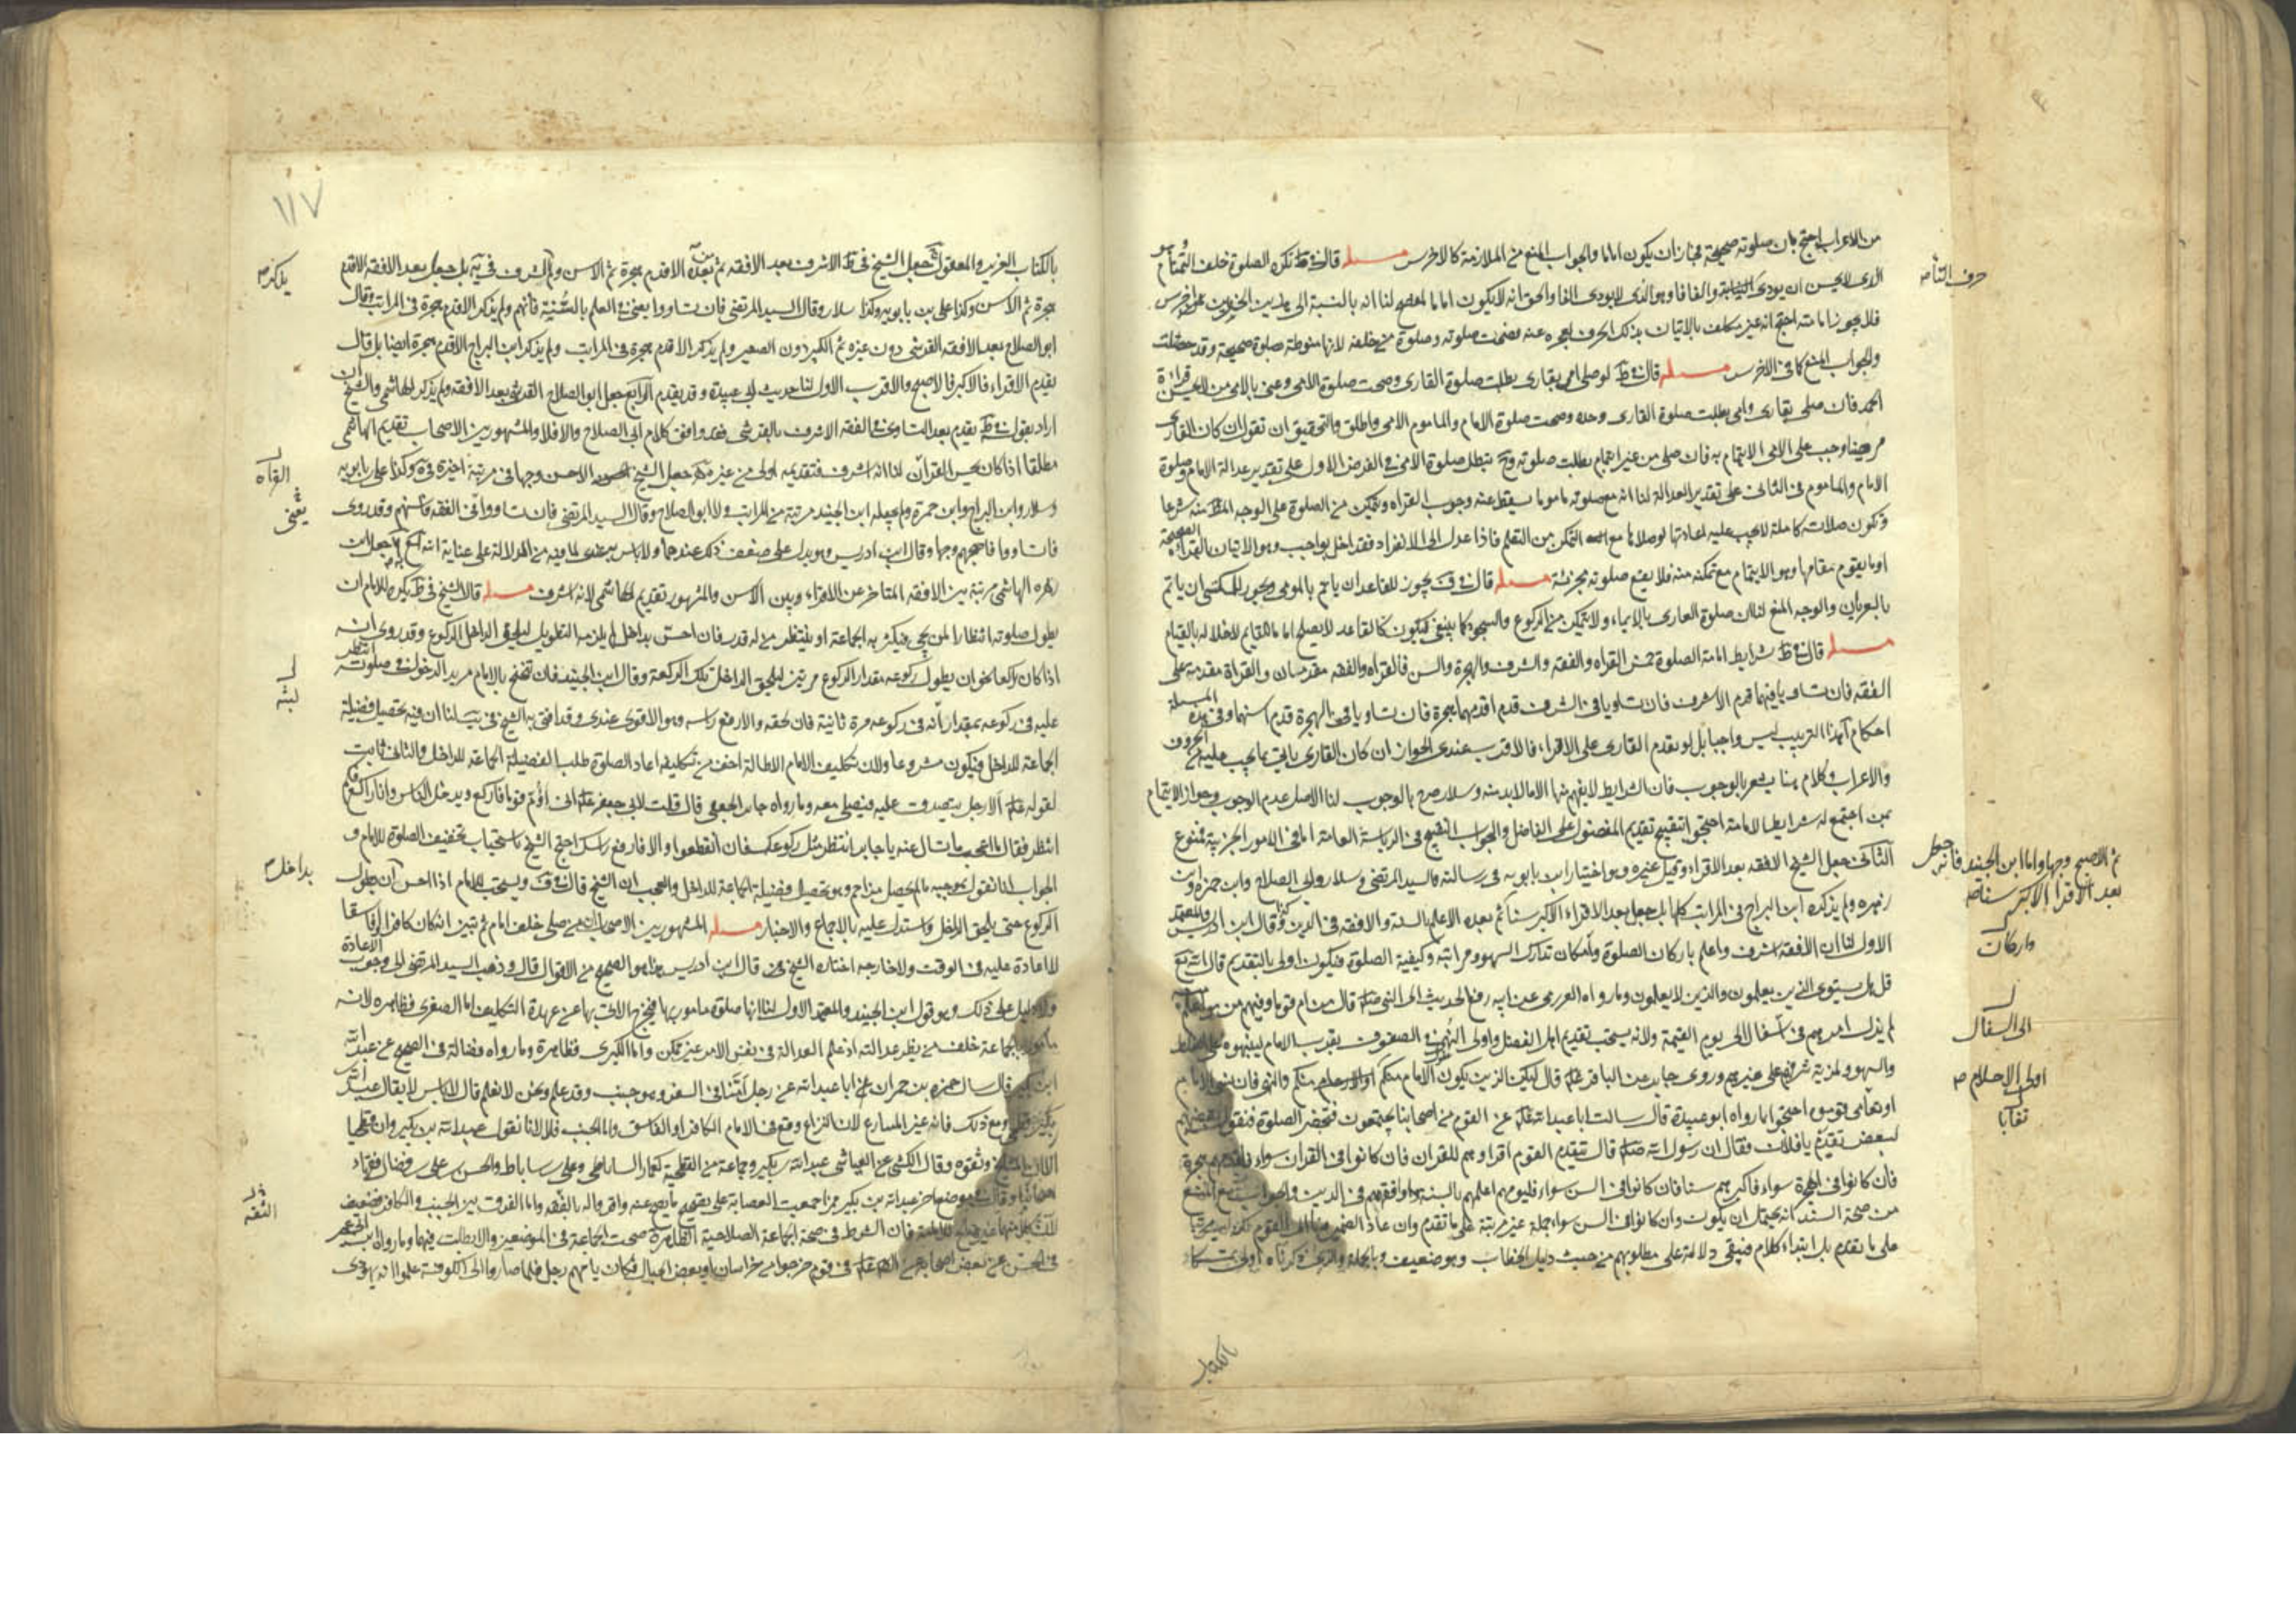 من الاعراب احتج بان صلوته صحيحة فجاز ان يكون اماما والجواب المنع من الملازمة كالاخرس مسئله قال فى ط تكره الصلوة خلف التمتام وهو
الذى لا يحسن ان يودى التا والفافا وهو الذى لا يودى الفا والحق انه لا يكون اماما لمفصح لنا انه بالنسبة الى هذين الحرفين
فلا يجوز امامته احتج انه غير مكلف بالاتيان بذلك الحرف لعجزه عنه فصحت صلوته وصلوة من خلفه لانها منوطة بصلوة صحيحة وقد حصلت
والجواب المنع كما فى الاخرس مسئله قال فى ط لو صلى امى بقارى بطلت صلوة القارى وصحت صلوة الامى وعنى بالامى من لا يحسن قراءة
الحمد فان صلى بقارى وامى بطلت صلوة القارى وحده وصحت صلوة الامام والماموم الامى واطلق والتحقيق ان نقول ان كان القارى
مرضيا وجب على الامى الايتمام به فان صلى من غير ايتمام بطلت صلوته وح تبطل صلوة الامى فى الفرض الاول على تقدير عدالة الامام وصلوة
الامام والماموم فى الثانى على تقدير العدالة لنا انه مع صلوته ماموما يسقط عنه وجوب القراه ويتمكن من الصلوة على الوجه المط منه شرعا
وتكون صلاته كاملة لا يجب عليه اعادتها لو صلاها مع التمكن من التعلم فاذا عدل الى الانفراد فقد اخل بواجب وهو الاتيان بالقراة الصحيحة
او ما يقوم مقامها وهو الايتمام مع تمكنه منه فلا يقع صلوته مجزئة مسئله قال فى ف يجوز للقاعد ان ياتم بالمومى ويجوز للمكتسى ان ياتم
بالعريان والوجه المنع لنا ان صلوة العارى بالايماء ولا يتمكن من الركوع والسجود كما ينبغى فيكون كالقاعد لا يصلح اماما للقايم لاخلاله بالقيام
مسئله قال فى ط شرايط امامة الصلوة خمس القراه والفقه والشرف والهجرة والسن فالقراه والفقه مقدمان والقراة مقدمة على
الفقه فان تساويا فيهما قدم الاشرف فان تساويا فى الشرف قدم اقدمهما هجرة فان تساويا فى الهجرة قدم اسنهما وفى هذه المسئلة
احكام آ هذا الترتيب ليس واجبا بل لو تقدم القارى على الاقراء فالاقرب عندى الجواز ان كان القارى ياتى بما يجب عليه من الحروف
والاعراب وكلام هنا يشعر بالوجوب فان الشرايط لا يفهم منها الا ما لا بد منه وسلار صرح بالوجوب لنا الاصل عدم الوجوب وجواز الايتمام
بمن اجتمع له شرايط الامامة احتجوا بقبح تقديم المفضول على الفاضل والجواب القبيح فى الرياسة العامة اما فى الامور الجزئية فممنوع
الثانى جعل الشيخ الافقه بعد الاقراء وقبل غيره وهو اختيار ابن بابويه فى رسالته والسيد المرتضى وسلار وابى الصلاح وابن حمزه وابن
زهره ولم يذكره ابن البراج فى المراتب كلها بل جعل بعد الاقراء الاكبر سنا ثم بعده الاعلم بالسنة والافقه فى الدين وكذا قال ابن ادريس والمعتمد
الاول لنا ان الافقه اشرف واعلم باركان الصلوة وامكان تدارك السهو ومراتبه وكيفية الصلوة فيكون اولى بالتقديم قال الله تع
قل هل يستوى الذين يعلمون والذين لا يعلمون وما رواه العزرمى عن ابيه رفع الحديث الى النبى صلم قال من ام قوما وفيهم من هو اعلم منه
لم يزل امرهم فى سفال الى يوم القيمة ولانه يستحب تقديم اهل الفضل واولى النهى فى الصفوف بقرب الامام لينبهوه على الغلط
والسهو ولمزية شرفهم على غيرهم وروى جابر عن الباقر علم قال ليكن الذين يلون الامام منكم اولو الاحلام منكم والنهى فان نسى الامام
او تعايى قوموه احتجوا بما رواه ابو عبيدة قال سالت ابا عبد الله علم عن القوم من اصحابنا يجتمعون فتحضر الصلوة فيقول بعضهم
لبعض تقدم يا فلان فقال ان رسول الله صلم قال يتقدم القوم اقراوهم للقران فان كانوا فى القران سواء فاقدمهم هجرة
فان كانوا فى الهجرة سواء فاكبرهم سنا فان كانوا فى السن سواء فليومهم اعلمهم بالسنة وافقههم فى الدين والجواب مع المنع
من صحة السند انه يحتمل ان يكون وان كانوا فى السن سواء جملة غير مرتبة على ما تقدم وان عاد الضمير فيها الى القوم
على ما تقدم بل ابتداء كلام فيبقى دلالته على مطلوبهم من حيث دليل الخطاب وهو ضعيف وبالجملة والذى ذكرناه اولى تمسكا
حرف التا صح
ثم الاصبح وجها واما ابن الجنيد فانه جعل
بعد الاقرا الاكبر سنا صح
واركان
الى السفال
اولى الاحلام صح
تعايا
بالكتاب
١١٧
بالكتاب العزيز والمعقول ج جعل الشيخ فى ط الاشرف بعد الافقه ثم بعده الاقدم هجرة ثم الاسن ولم الشرف فى يه بل جعل بعد الافقه الاقدم
هجرة ثم الاسن وكذا على بن بابويه وكذا سلار وقال السيد المرتضى فان تساووا يعنى فى العلم بالسنة فاسنهم ولم يذكر الاقدم هجرة فى المراتب وقال
ابو الصلاح بعد الافقه القرشى دون غيره ثم الكبير دون الصغير ولم يذكر الاقدم هجرة فى المراتب ولم يذكر ابن البراج الاقدم هجرة ايضا بل قال
يقدم الاقراء فالاكبر فالاصبح والاقرب الاول لنا حديث ابى عبيدة وقد تقدم الرابع جعل ابو الصلاح القرشى بعد الافقه ولم يذكر الهاشمى والشيخ ان
اراد بقوله فى ط يقدم بعد التساوى فى الفقه الاشرف بالقرشى فقد وافق كلام ابى الصلاح والا فلا والمشهور بين الاصحاب تقديم الهاشمى
مطلقا اذا كان يحسن القرآن لنا انه اشرف فتقديمه اولى من غيره جعل الشيخ الاحسن وجها فى مرتبة اخيرة فى يه وكذا على بن بابويه
وسلار وابن البراج وابن حمزة ولم يجعله ابن الجنيد مرتبة من المراتب ولا ابو الصلاح وقال السيد المرتضى فان تساووا فى الفقه فاسنهم وقد روى
فان تساووا فاصبحهم وجها وقال ابن ادريس وهو يدل على ضعف ذلك عندهما ولا باس به عندى لما فيه من الدلالة على عناية الله تع به جعل ابن
زهره الهاشمى مرتبة بين الافقه المتاخر عن الاقراء وبين الاسن والمشهور تقديم الهاشمى لانه اشرف مسئله قال الشيخ فى ط يكره للامام ان
يطول صلوته انتظارا لمن يجى فيكثر به الجماعة او ينتظر من له قدر فان احس بداخل لم يلزمه التطويل ليلحق الداخل الركوع وقد روى انه
اذا كان راكعا يجوز ان يطول ركوعه مقدار الركوع مرتين ليلحق الداخل تلك الركعة وقال ابن الجنيد فان تنحنح بالامام مريد الدخول فى صلوته انتظر
عليه فى ركوعه بمقدار انه فى ركوعه مرة ثانية فان لحقه والا رفع راسه وهو الاقوى عندى وقد افتى به الشيخ فى يب لنا ان فيه تحصيل فضيلة
الجماعة للداخل فيكون مشروعا ولان تكليف الامام الاطالة اخف من تكليفه اعاد الصلوة طلبا لفضيلة الجماعة للداخل والثانى ثابت
لقوله علم الا رجل يتصدق عليه فيصلى معه وما رواه جابر الجعفى قال قلت لابى جعفر علم انى أؤم قوما فاركع ويدخل الناس وانا راكع فكم
انتظر فقال ما اعجب ما تسال عنه يا جابر انتظر مثل ركوعك فان انقطعوا والا فارفع راسك احتج الشيخ باستحباب تخفيف الصلوة للامام و
الجواب انا نقول بموجبه ما لم يحصل مزاحم وهو تحصيل فضيلة الجماعة للداخل والعجب ان الشيخ قال فى ف ويستحب للامام اذا احس ان يطول
الركوع حتى يلحق الداخل واستدل عليه بالاجماع والاخبار مسئله المشهور بين الاصحاب ان من صلى خلف امام ثم تبين انه كان كافرا او فاسقا
لا اعادة عليه فى الوقت ولا خارجه اختاره الشيخ قال ابن ادريس هذا هو الصحيح من الاقوال قال وذهب السيد المرتضى الى وجوب الاعادة
ولا دليل على ذلك وهو قول ابن الجنيد والمعتمد الاول لنا انها صلوة مامور بها فيخرج الاتى بها عن عهدة التكليف اما الصغرى فظاهره لانه
مامور بالجماعة خلف من يظن عدالته اذ علم العدالة فى نفس الامر غير ممكن واما الكبرى فظاهرة وما رواه فضالة فى الصحيح عن عبد الله
ابن بكير قال سال حمزه بن حمران ابا عبد الله عن رجل امنا فى السفر وهو جنب وقد علم ونحن لا نعلم قال لا باس لا يقال عبد الله بن
بكير فطحى ومع ذلك فانه غير المسارع لان النزاع وقع فى الامام الكافر او الفاسق والجنب فلا لانا نقول عبد الله بن بكير وان فطحيا
الا ان المشايخ وثقوه وقال الكشى عن العياشى عبد الله بن بكير وجماعة من الفطحية كعمار الساباطى وعلى بن اسباط والحسن بن على بن فضال فقهاء
اصحابنا وقال فى موضع اخر عبد الله بن بكير ممن اجمعت العصابة على تصحيح ما يصح عنه واقر واله بالفقه واما الفرق بين الجنب والكافر فضعيف
لان كلا منهما غير صالح للامامة فان الشرط فى صحة الجماعة الصلاحية الظاهرة صحت الجماعة فى الموضعين والا بطلت فيهما وما رواه ابن ابى عمير
فى الحسن عن بعض اصحابه عن علم فى قوم خرجوا من خراسان او بعض الجبال فكان يامهم رجل فلما صاروا الى الكوفة علموا انه يهودى
يذكر صح
القراه
يعنى
لبثه
بداخل صح
الثقه